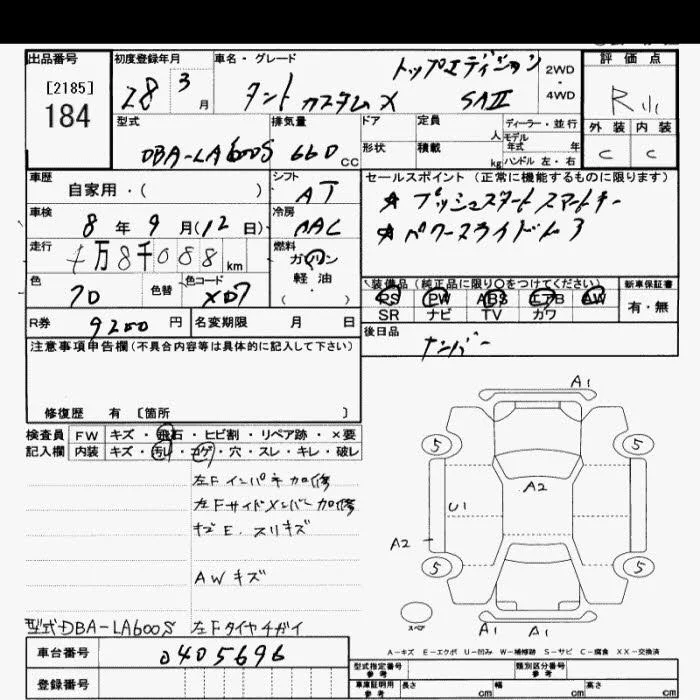 出品番号
[2185]
184
初度登録年月
28 3 月
車名・グレード
トップエディション
タント カスタムX SAⅡ
2WD
・
4WD
評価点
R
外装 内装
C C
型式
DBA-LA600S
排気量
660 CC
ドア
形状
定員
人
積載
kg
ディーラー・並行
モデル
年式 年
ハンドル 左・右
車歴
自家用・( )
シフト
AT
車検
8 年 9 月(12 日)
冷房
AAC
走行
万8千088 km
燃料
ガソリン
軽油
( ・ )
色
色替
色コード
X07
R券
9200 円
名変期限 月 日
セールスポイント (正常に機能するものに限ります)
☆ プッシュスタート スマートキー
☆ パワースライドドア
装備品 (純正品に限り○をつけてください)
PS PW ABS エアB AW
SR ナビ TV カワ
新車保証書
有・無
後日品
ナンバー
注意事項申告欄(不具合内容等は具体的に記入して下さい)
修復歴 有 [箇所 ]
検査員
記入欄
FW キズ・飛石・ヒビ割・リペア跡・×要
内装 キズ・汚レ・コゲ・穴・スレ・キレ・破レ
左Fインパネ加修
左Fサイドメンバー加修
キズE. スリキズ
AWキズ
型式DBA-LA600S 左Fタイヤチガイ
A1
5 5
A2
U1
A2
5 5
スペア
A1 A1
A-キズ E-エクボ U-凹み W-補修跡 S-サビ C-腐食 XX-交換済
車台番号
0405696
登録番号
型式指定番号
参考
類別区分番号
参考
車庫証明用
参考
長さ cm
幅 cm
高さ cm